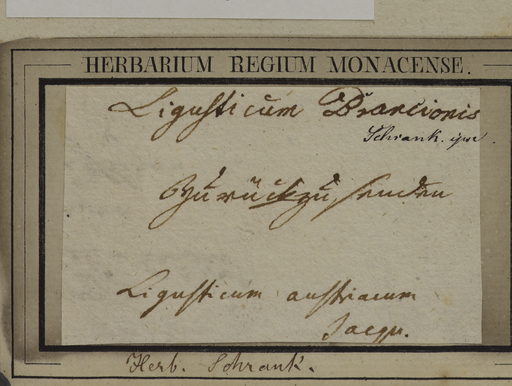 HERBARIUM REGIUM MONACENSE.
Ligusticum
Schrank. ipse.
Zurückzusenden
Ligusticum austriacum
Jacqu.
Herb. Schrank.